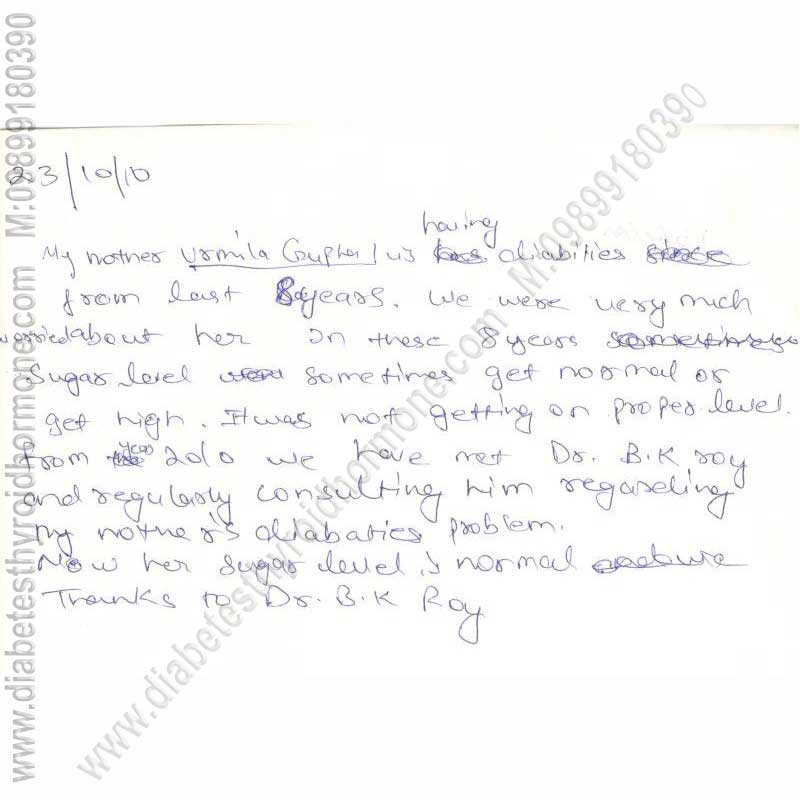 www.diabetesthyroidhormone.com M:09899180390
www.diabetesthyroidhormone.com M:09899180390
23/10/10
having
My mother Urmila Gupha is diabities
from last 8 years. We were very much
worried about her In these 8 years
Sugar level sometimes get normal or
get high. It was not getting on proper level.
From year 2010 we have met Dr. B.K roy
and regularly consulting him regarding
my mother's diabaties problem.
Now her sugar level is normal
Thanks to Dr. B.K Roy